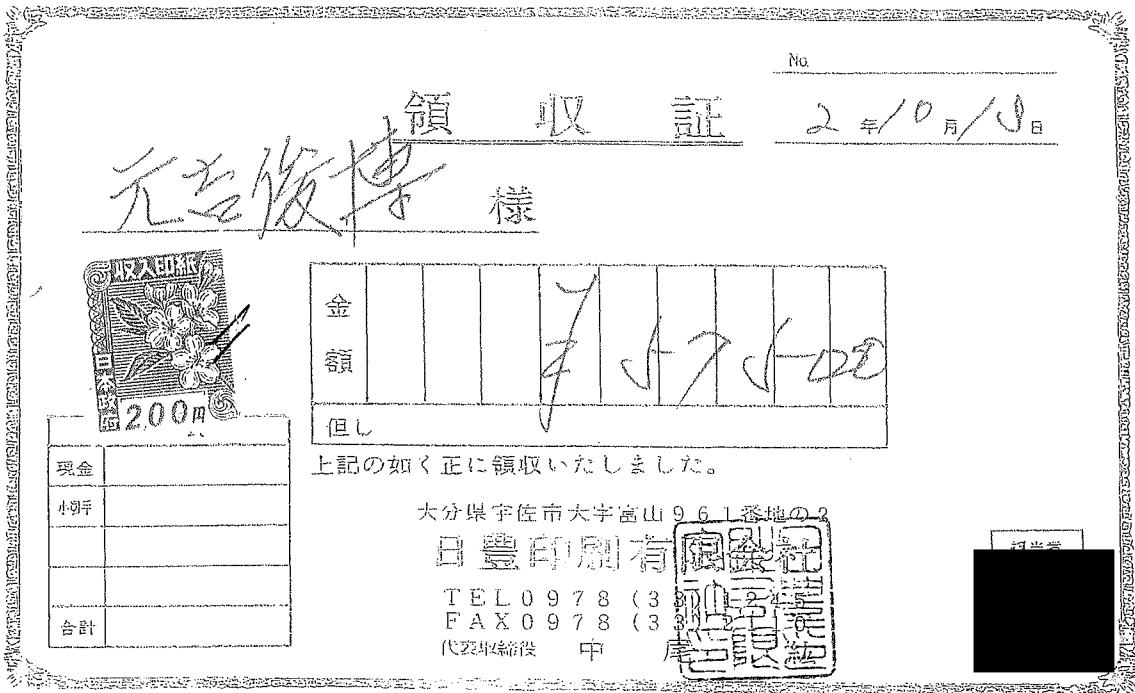 No.
領 収 証
2 年 10 月 13 日
元吉俊博 様
収入印紙
日本政府
200円
金額
但し
上記の如く正に領収いたしました。
現金
小切手
合計
大分県宇佐市大字富山961番地の2
日豊印刷有限会社
TEL0978(33
FAX0978(33
代表取締役 中尾
担当者